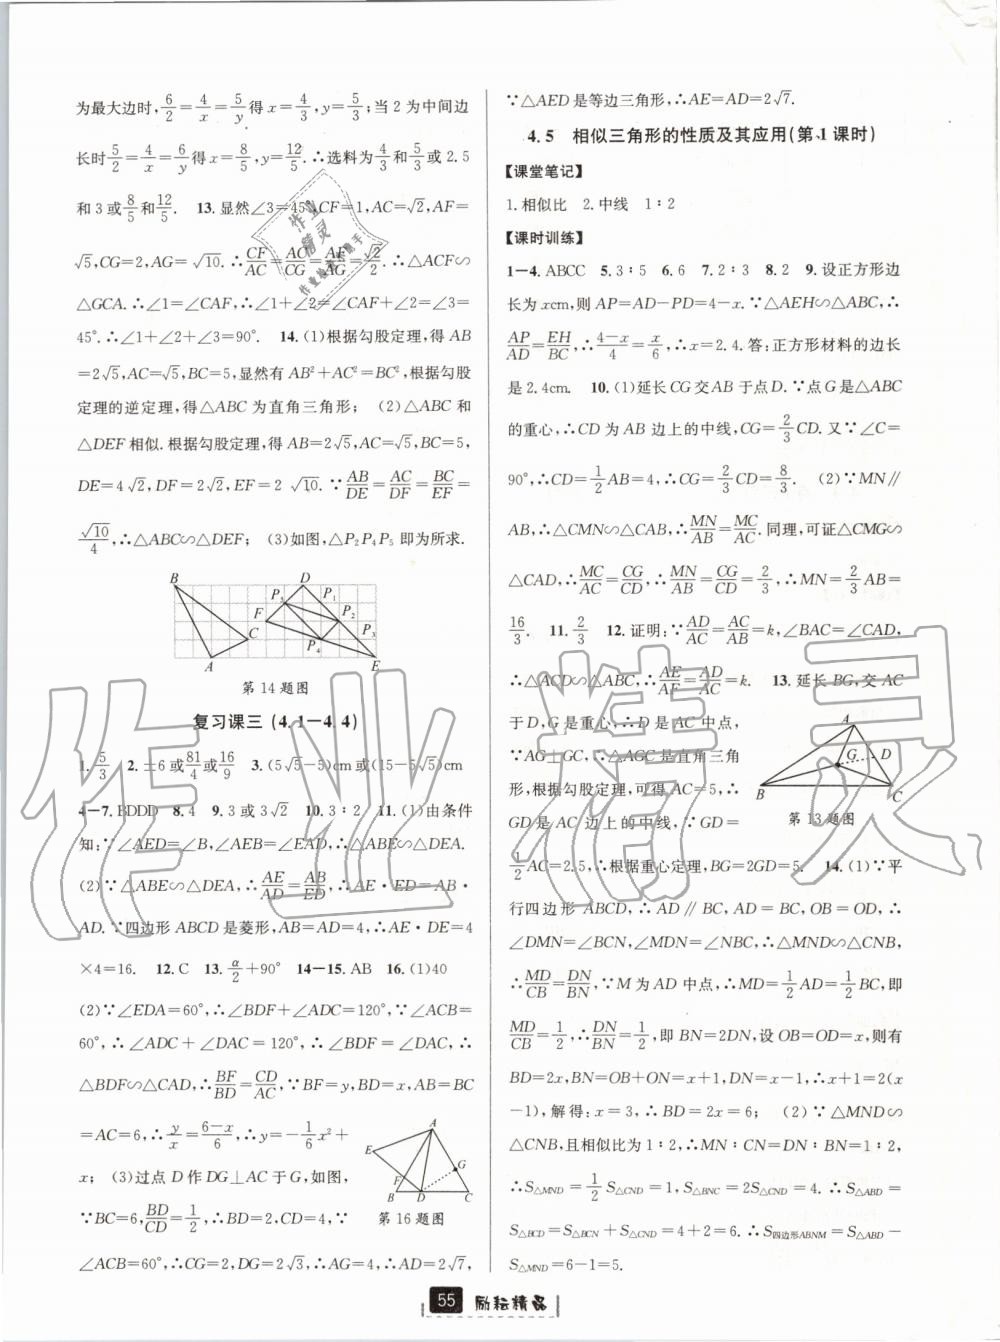 为最大边时,6/2=4/x=5/y得x=4/3,y=5/3;当2为中间边
长时5/2=4/x=6/y得x=8/5,y=12/5.∴选料为4/3和5/3或2.5
和3或8/5和12/5. 13.显然∠3=45°,CF=1,AC=√2,AF=
√5,CG=2,AG=√10.∴CF/AC=AC/CG=AF/AG=√2/2.∴△ACF∽
△GCA.∴∠1=∠CAF,∴∠1+∠2=∠CAF+∠2=∠3=
45°.∴∠1+∠2+∠3=90°. 14.(1)根据勾股定理,得AB
=2√5,AC=√5,BC=5,显然有AB²+AC²=BC²,根据勾股
定理的逆定理,得△ABC为直角三角形; (2)△ABC和
△DEF相似.根据勾股定理,得AB=2√5,AC=√5,BC=5,
DE=4√2,DF=2√2,EF=2√10.∵AB/DE=AC/DF=BC/EF=
√10/4,∴△ABC∽△DEF; (3)如图,△P₂P₄P₅即为所求.
B D P₅ P₁ F P₂ C P₃ P₄ A E
第14题图
复习课三(4.1—4.4)
1.5/3 2.±6或81/4或16/9 3.(5√5-5)cm或(15-5√5)cm
4—7.BDDD 8.4 9.3或3√2 10.3∶2 11.(1)由条件
知:∠AED=∠B,∠AEB=∠EAD,∴△ABE∽△DEA.
(2)∵△ABE∽△DEA,∴AE/AD=AB/ED,∴AE·ED=AB·
AD.∵四边形ABCD是菱形,AB=AD=4,∴AE·DE=4
×4=16. 12.C 13.α/2+90° 14—15.AB 16.(1)40
(2)∵∠EDA=60°,∴∠BDF+∠ADC=120°,∵∠ACB=
60°,∴∠ADC+∠DAC=120°,∴∠BDF=∠DAC,∴
△BDF∽△CAD,∴BF/BD=CD/AC,∵BF=y,BD=x,AB=BC
=AC=6,∴y/x=(6-x)/6,∴y=-1/6x²+
x; (3)过点D作DG⊥AC于G,如图,
∵BC=6,BD/CD=1/2,∴BD=2,CD=4,∵
∠ACB=60°,∴CG=2,DG=2√3,∴AG=4,∴AD=2√7,
A E G F B D C
第16题图
∵△AED是等边三角形,∴AE=AD=2√7.
4.5 相似三角形的性质及其应用(第1课时)
【课堂笔记】
1.相似比 2.中线 1∶2
【课时训练】
1—4.ABCC 5.3∶5 6.6 7.2∶3 8.2 9.设正方形边
长为xcm,则AP=AD-PD=4-x.∵△AEH∽△ABC,∴
AP/AD=EH/BC,∴(4-x)/4=x/6,∴x=2.4.答:正方形材料的边长
是2.4cm. 10.(1)延长CG交AB于点D.∵点G是△ABC
的重心,∴CD为AB边上的中线,CG=2/3CD.又∵∠C=
90°,∴CD=1/2AB=4,∴CG=2/3CD=8/3. (2)∵MN∥
AB,∴△CMN∽△CAB,∴MN/AB=MC/AC.同理,可证△CMG∽
△CAD,∴MC/AC=CG/CD,∴MN/AB=CG/CD=2/3,∴MN=2/3AB=
16/3. 11.2/3 12.证明:∵AD/AC=AC/AB=k,∠BAC=∠CAD,
∴△ACD∽△ABC,∴AE/AF=AD/AC=k. 13.延长BG,交AC
于D,G是重心,∴D是AC中点,
∵AG⊥GC,∴△AGC是直角三角
形,根据勾股定理,可得AC=5,∴
GD是AC边上的中线,∴GD=
1/2AC=2.5,∴根据重心定理,BG=2GD=5. 14.(1)∵平
A G D B C
第13题图
行四边形ABCD,∴AD∥BC,AD=BC,OB=OD,∴
∠DMN=∠BCN,∠MDN=∠NBC,∴△MND∽△CNB,
∴MD/CB=DN/BN,∵M为AD中点,∴MD=1/2AD=1/2BC,即
MD/CB=1/2,∴DN/BN=1/2,即BN=2DN,设OB=OD=x,则有
BD=2x,BN=OB+ON=x+1,DN=x-1,∴x+1=2(x
-1),解得:x=3,∴BD=2x=6; (2)∵△MND∽
△CNB,且相似比为1∶2,∴MN∶CN=DN∶BN=1∶2,
∴S△MND=1/2S△CND=1,S△BNC=2S△CND=4.∴S△ABD=
S△BCD=S△BCN+S△CND=4+2=6.∴S四边形ABNM=S△ABD-
S△MND=6-1=5.
55 励耘精品
作业精灵